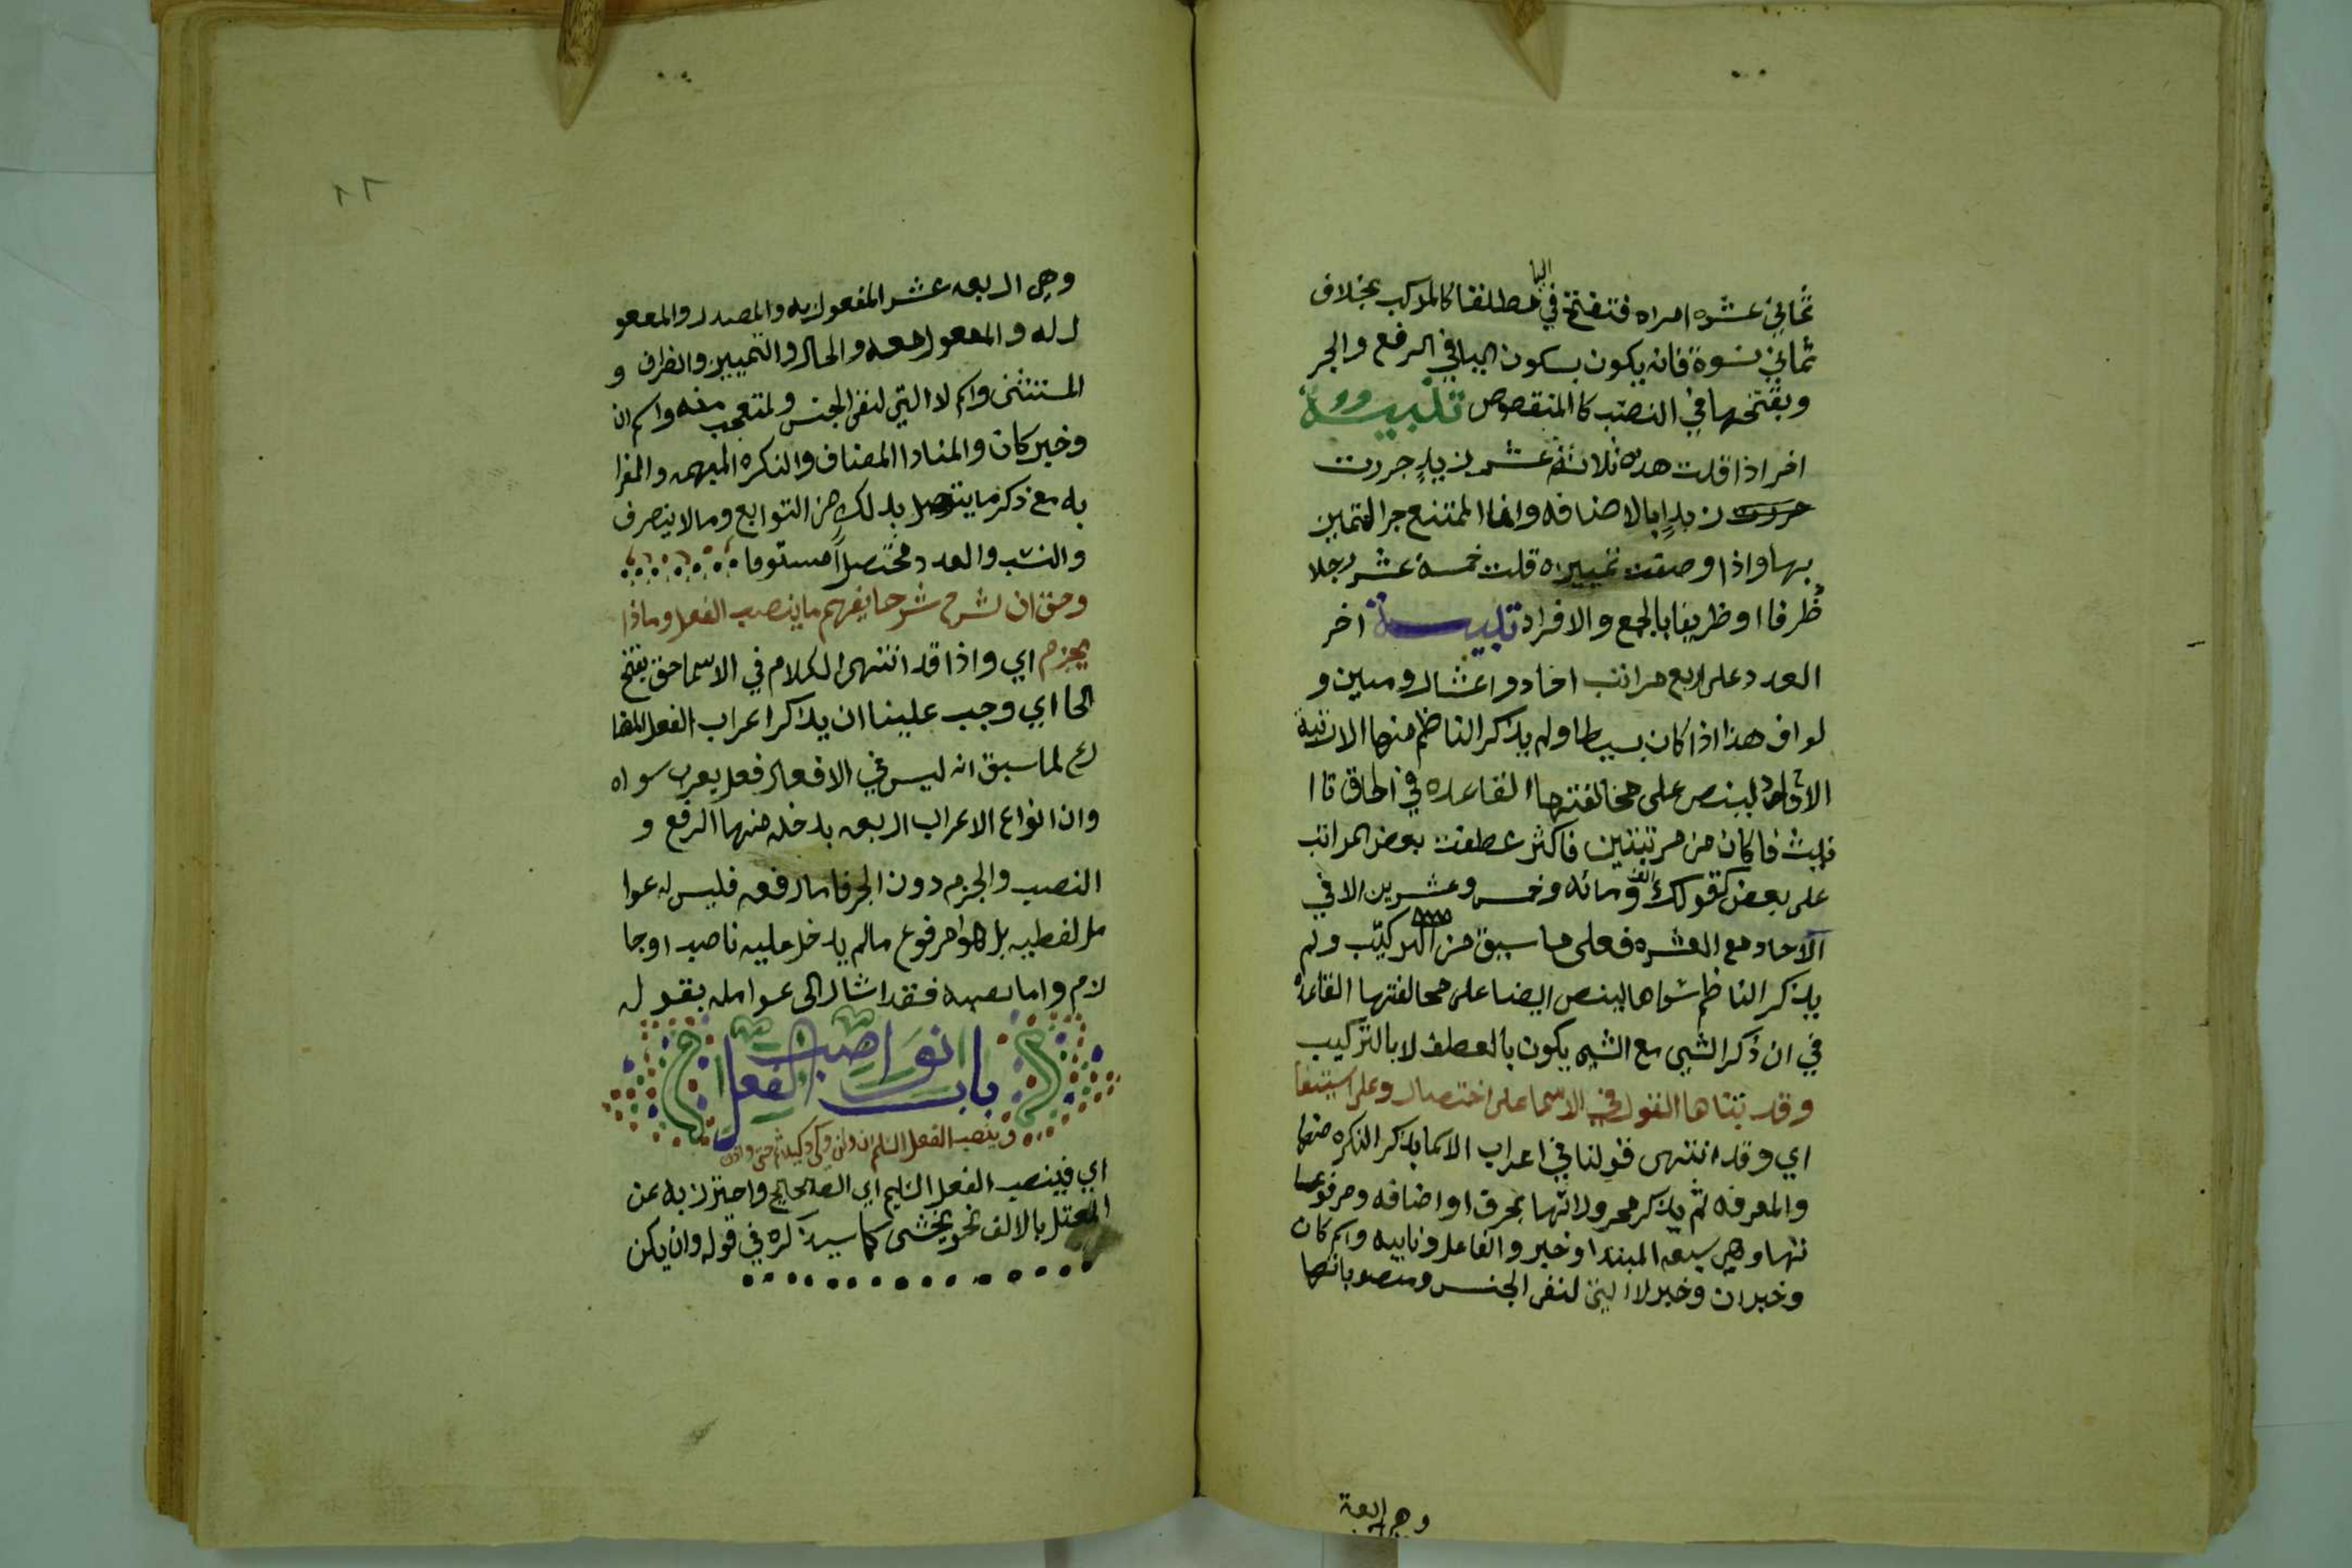 ثماني عشره امراه فتفتح في اليا مطلقا كالمركب بخلاف
ثماني نسوة فانه يكون بسكون اليا في الرفع والجر
وبفتحها في النصب كالمنقوص تنبيه
اخر اذا قلت هده ثلاثة عشر زيدٍ جررت
زيدٍ بالاضافه وانما الممتنع جر التميز
بها واذا وصفت تمييزه قلت خمسة عشر رجلا
ظرفا او ظريفا بالجمع والافراد تنبيه اخر
العدد على اربع مراتب احاد واعشار ومئين و
لواف هذا اذا كان بسيطا ولم يذكر الناظم منها الا رتبة
الاحاد لينص على مخالفتها القاعده في الحاق تا ا
فان كان من مرتبتين فاكثر عطفت بعض المراتب
على بعض كقولك الف ومائه وخمس وعشرين الا في
الاحاد مع العشره فعلى ما سبق من التركيب ولم
يذكر الناظم سواها لينص ايضا على مخالفتها القاعده
في ان ذكر الشي مع الشي يكون بالعطف لا بالتركيب
وقد تناها القول في الاسما على اختصار وعلى استيفا
اي وقد انتهى قولنا في اعراب الاسما بذكر النكره منها
والمعرفه ثم بذكر مجروراتها بحرف او اضافه ومرفوعا
تها وهي سبعه المبتدا وخبر والفاعل ونايبه واسم كان
وخبر ان وخبر لا التي لنفي الجنس ومنصوباتها
وهي اربعة
وهي اربعه عشر المفعول به والمصدر والمفعو
ل له والمفعول معه والحال والتمييز والظرف و
المستثنى واسم لا التي لنفي الجنس والمتعجب منه واسم ان
وخبر كان والمنادا المضاف والنكره المبهمه والمغرا
به مع ذكر ما يتصل بدلك من التوابع وما لا ينصرف
والنسب والعدد مختصراً مستوفا
وحق ان نشرح شرحا يفهم ما ينصب الفعل وماذا
يجزم اي واذا قد انتهى الكلام في الاسما حق بفتح
الحا اي وجب علينا ان يذكر اعراب الفعل المضا
رع لما سبق انه ليس في الافعال فعل يعرب سواه
وان انواع الاعراب اربعه يدخله منها الرفع و
النصب والجزم دون الجر فاما رفعه فليس له عوا
مل لفظيه بل هو مرفوع ما لم يدخل عليه ناصب او جا
زم واما نصبه فقد اشار الى عوامله بقوله
باب نواصب الفعل
وينصب الفعل السليم ان ولن وكي وكيلا ثم حتى واذن
اي فينصب الفعل السليم اي الصحيح واحترز به عن
المعتل بالالف نحو يخشى كما سيذكره في قوله وان يكن